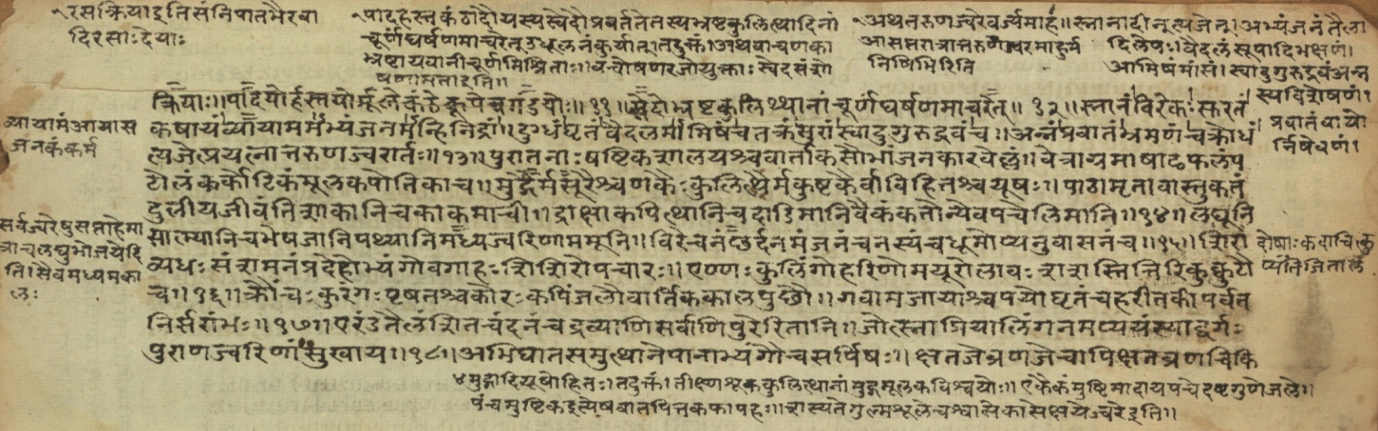 रसक्रियाइतिसंनिपातभैरवा
दिरसाःदेयाः
पादहस्तकंठादौयस्यस्वेदोप्रवर्ततेतस्यभ्रष्टकुलित्थादिनां
चूर्णघर्षणमाचरेत्उधूलनंकुर्यात्तदुक्तं।अथवाचणका
भ्रष्टायवानीचूर्णमिश्रिताः॥
अथतरुणज्वरेवर्ज्यमाह॥स्नानादीनुत्यजेत्।अभ्यंजनंतैला
आसप्तरात्रात्तरुणज्वरमाहुर्म
निषिभिरिति
दिलेपः।वैदलंसूपादिभक्षणं।
आमिषंमांसं।स्वादुगुरुद्रवंअन्न
क्रियाः॥पादयोर्हस्तयोर्मूलेकंठेकूपेचगंडयोः॥११॥स्वेदोभ्रष्टकुलिथ्थानांचूर्णघर्षणमाचरेत्॥१२॥स्नानंविरेकंसुरतं
कषायंव्यायाममभ्यंजनमन्हिनिद्रां॥दुग्धंघृतंवैदलमामिषंचतक्रंसुरांस्वादुगुरुद्रवंच॥अन्नंप्रवातंभ्रमणंचक्रोधं
त्यजेत्प्रयत्नात्तरुणज्वरार्तः॥१३॥पुरातनाःषष्टिकशालयश्चवार्ताकसौभांजनकारवेल्लं॥वेत्राग्रमाषाढफलंप
टोलंकर्कोटिकंमूलकपोतिकाच॥मुद्गैर्मसूरैश्चणकैःकुलित्थैर्मकुष्टकैर्वाविहितश्चयूषः॥पाठामृतावास्तुकतं
दुलीयजीवंतिशाकानिचकाकमाची॥द्राक्षाकपित्थानिचदाडिमानिवैकंकतान्येवपचेलिमानि॥१४॥लघूनि
सात्म्यानिचभेषजानिपथ्यानिमध्यज्वरिणाममूनि॥विरेचनंछर्दनमंजनंचनस्यंचधूमोप्यनुवासनंच॥१५॥शिरो
व्यधःसंशमनंप्रदेहोभ्यंगोवगाहःशिशिरोपचारः॥एणःकुलिंगोहरिणोमयूरोलावःशशस्तित्तिरिकुक्कुटौ
च॥१६॥क्रौंचःकुरंगःपृषतश्चकोरःकपिंजलौवार्तिककालपुछौ॥गवामजायाश्चपयोघृतंचहरीतकीपर्वत
निर्सरांभः॥१७॥एरंडतैलंशितचंदनंचद्रव्याणिसर्वाणिपुरेरितानि॥जोत्स्नाप्रियालिंगनमप्ययंस्याद्वर्गः
पुराणज्वरिणांसुखाय॥१८॥अभिघातसमुत्थानेपानाभ्यंगौचसर्पिषः॥क्षतजेव्रणजेचापिक्षतव्रणचिकि
स्यदिशेषणं।
प्रवातंवायो
र्निषेधणं।
व्यायामंआयास
जनकंकर्म
सर्वज्वरेषुसप्ताहंमा
त्राचलघुभोजयेदि
ति।
दोषाःकदाचित्कु
प्यंतिजितालं
मुद्गादियूषोहितः।तदुक्तं।तीक्ष्णशूककुलित्थानांमुद्गमूलकविश्वयोः॥एकैकंमुष्टिमादायपचेदष्टगुणेजले॥
पंचमुष्टिकइत्येषवातपित्तकफापहः॥शस्यतेगुल्मशूलेचश्वासेकासेक्षयेज्वरेइति॥